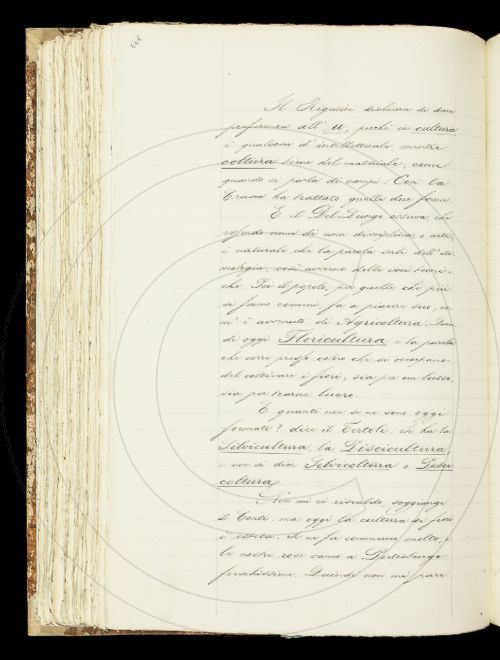 446
Il Rigutini dichiara di dare
preferenza all' u, perchè in cultura
è qualcosa d'intellettuale, mentre
coltura tiene del materiale, come
quando si parla di campi. Così la
Crusca ha trattato quelle due forme.
E il Del Lungo osserva che
essendo nomi di una disciplina e arte,
è naturale che la parola senta dell' eti-
mologia, così avviene delle voci tecni-
che. Poi il popolo, per quelle che più
si fanno comuni, fa a piacer suo, co-
m' è avvenuto di Agricoltura.
di oggi Floricultura è la parola
che corre presso coloro che si occupano
del coltivare i fiori, sia per un lusso,
sia per trarne lucro.
E quanti non se ne sono oggi
formate? dice il Tortoli, si ha la
Silvicultura, la Piscicultura,
e non si dice Selvicoltura o Pesci
coltura.
Non mi ci riscaldo, soggiunge
il Conti, ma oggi la cultura di fiori
è estesa, se ne fa commercio molto,
le nostre rose vanno a Pietroburgo
freschissime. Quindi non mi pare